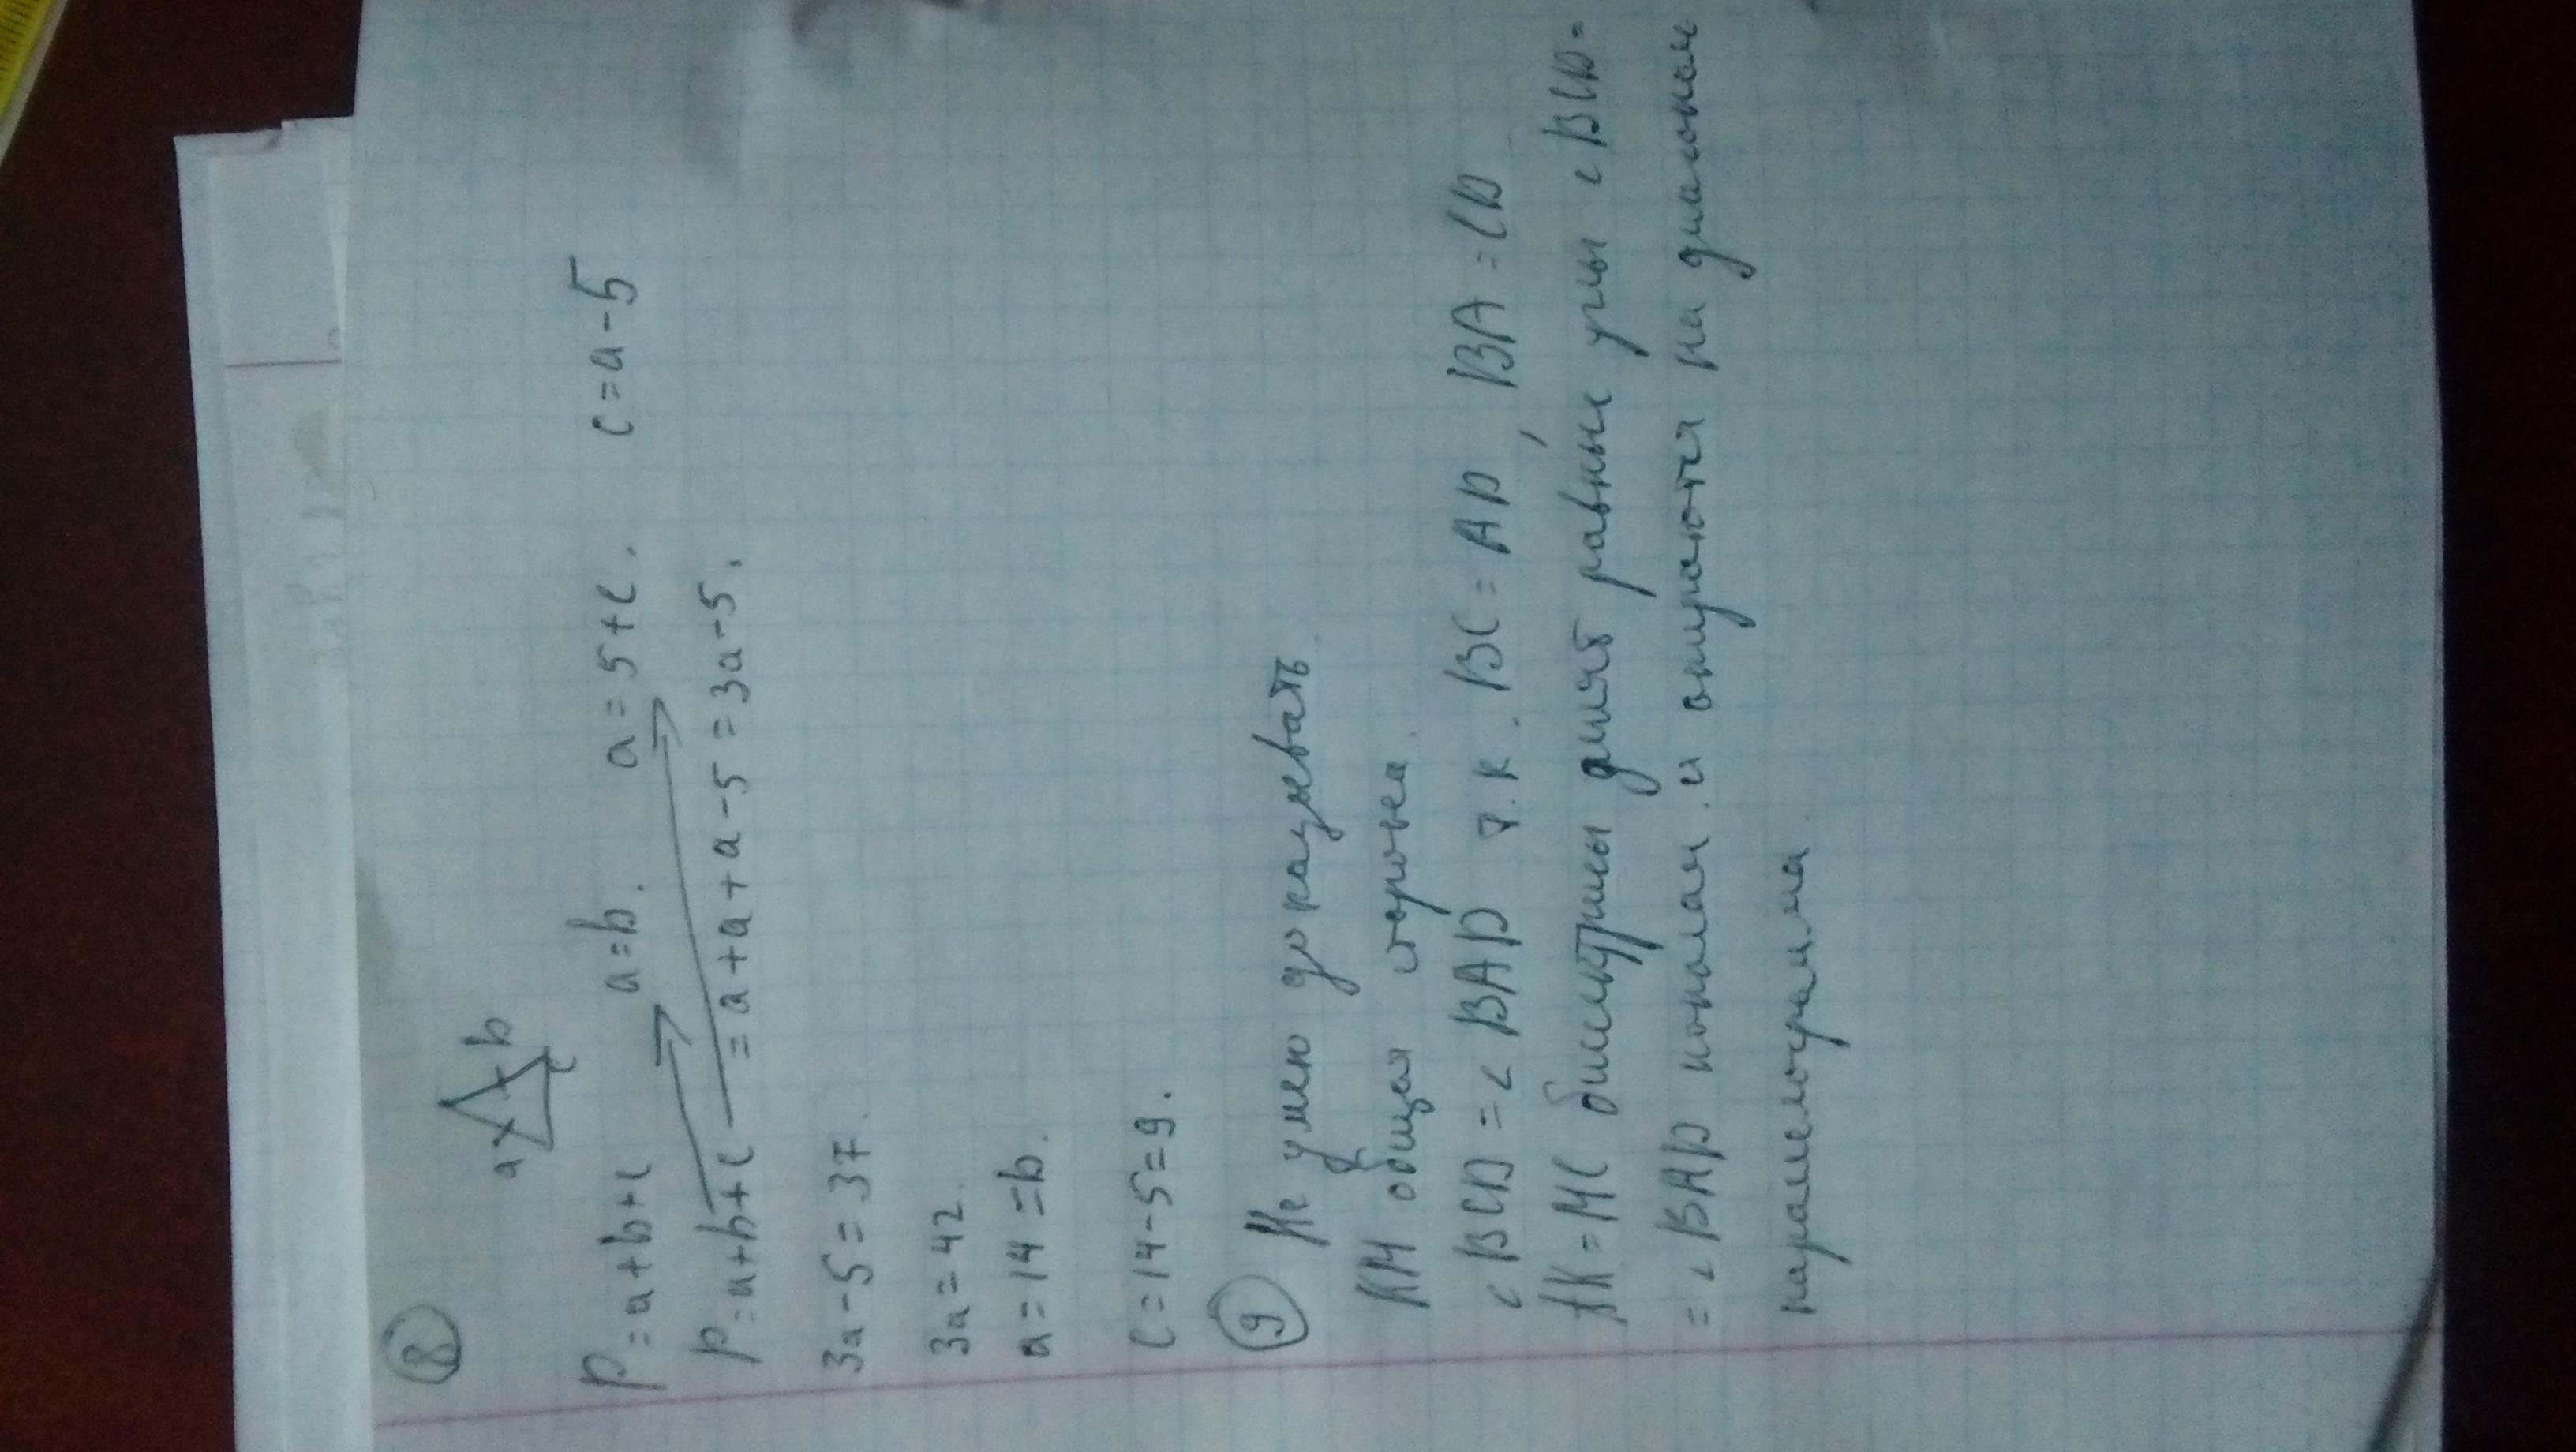 8
a b
c
P = a + b + c a = b. a = 5 + c. c = a - 5
P = a + b + c = a + a + a - 5 = 3a - 5.
3a - 5 = 37.
3a = 42.
a = 14 = b.
c = 14 - 5 = 9.
9 Не умею доказывать.
КМ общая сторона.
∠BCD = ∠BAD т.к. BC = AD, BA = CD
AK = MC биссектрисы делят равные углы ∠BCD =
= ∠BAD пополам и опираются на диагонали
параллелограмма.